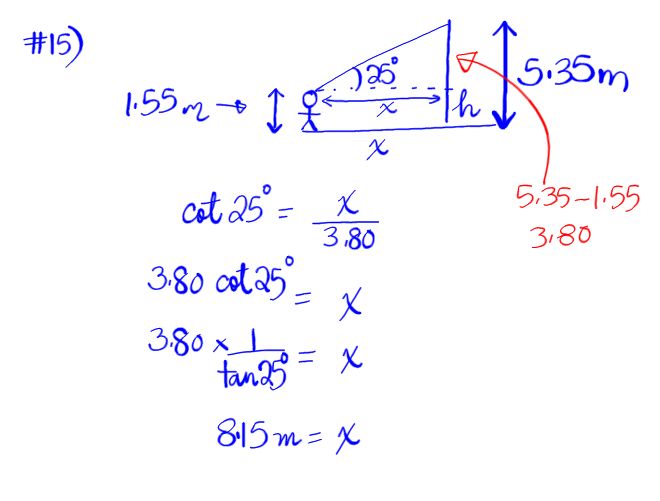 #15)
25°
5.35m
1.55m
x
h
x
5.35-1.55
3.80
cot 25° = x/3.80
3.80 cot 25° = x
3.80 × 1/tan 25° = x
8.15 m = x